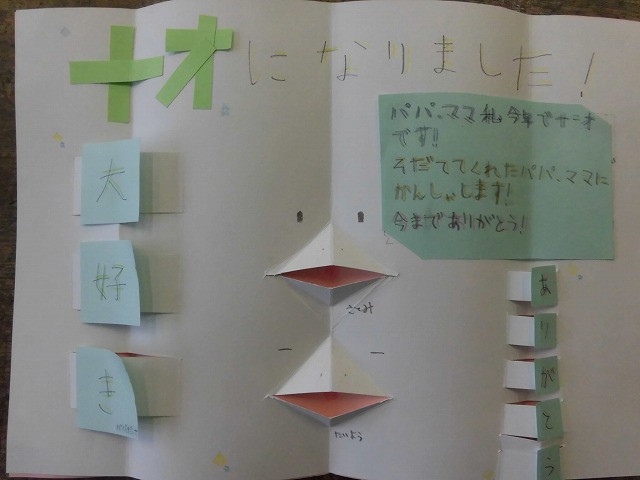 十才になりました!
パパ、ママ私今年で十才
です!!
そだててくれたパパ、ママに
かんしゃします!
今までありがとう!
大好き
さとみ
たいよう
ありがとう